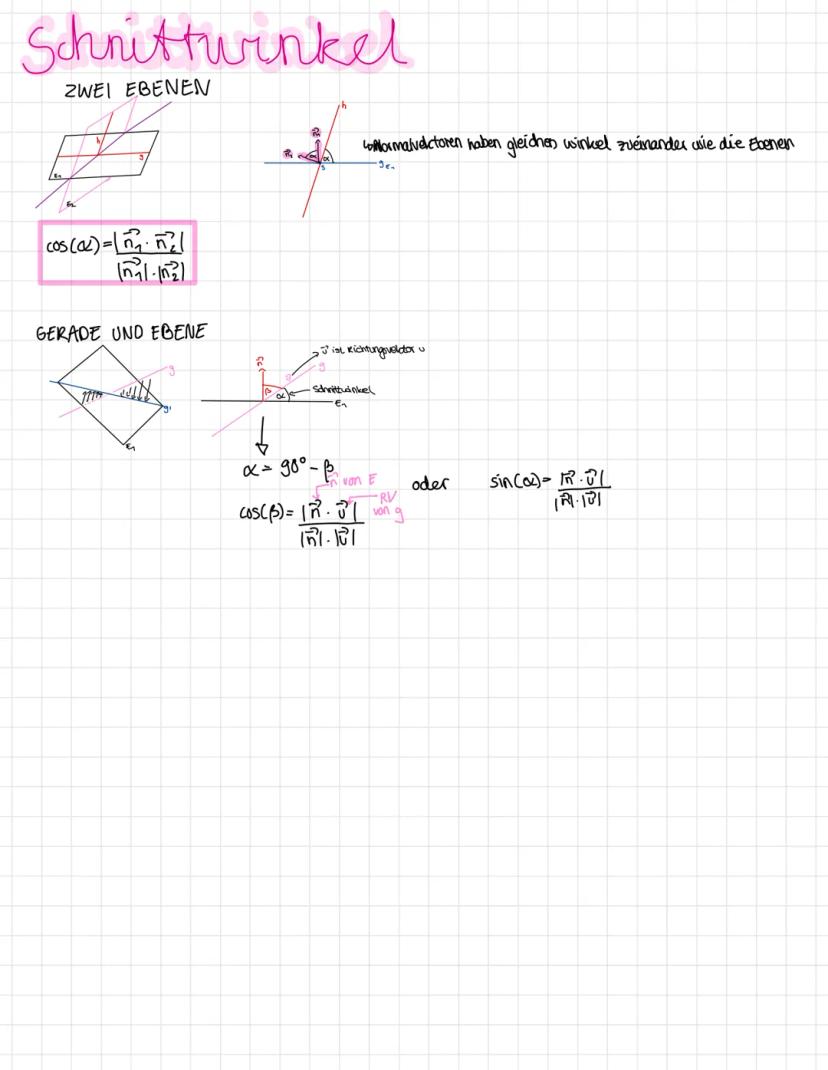 Schnittwinkel
ZWEI EBENEN
h
g
E₁
E₂
h
n⃗₂
n⃗₁
α
α
S
g E₁
↳Normalvektoren haben gleichen winkel zueinander wie die Ebenen
cos(α)=|n⃗₁ · n⃗₂|
|n⃗₁| · |n⃗₂|
GERADE UND EBENE
g
g'
E₁
n⃗
u⃗ ist Richtungsvektor u
g
β
α
Schnittwinkel
E₁
α = 90° - β
n⃗ von E
cos(β) = |n⃗ · u⃗|
|n⃗| · |u⃗|
RV
von g
oder
sin(α) = |n⃗ · u⃗|
|n⃗| · |u⃗|